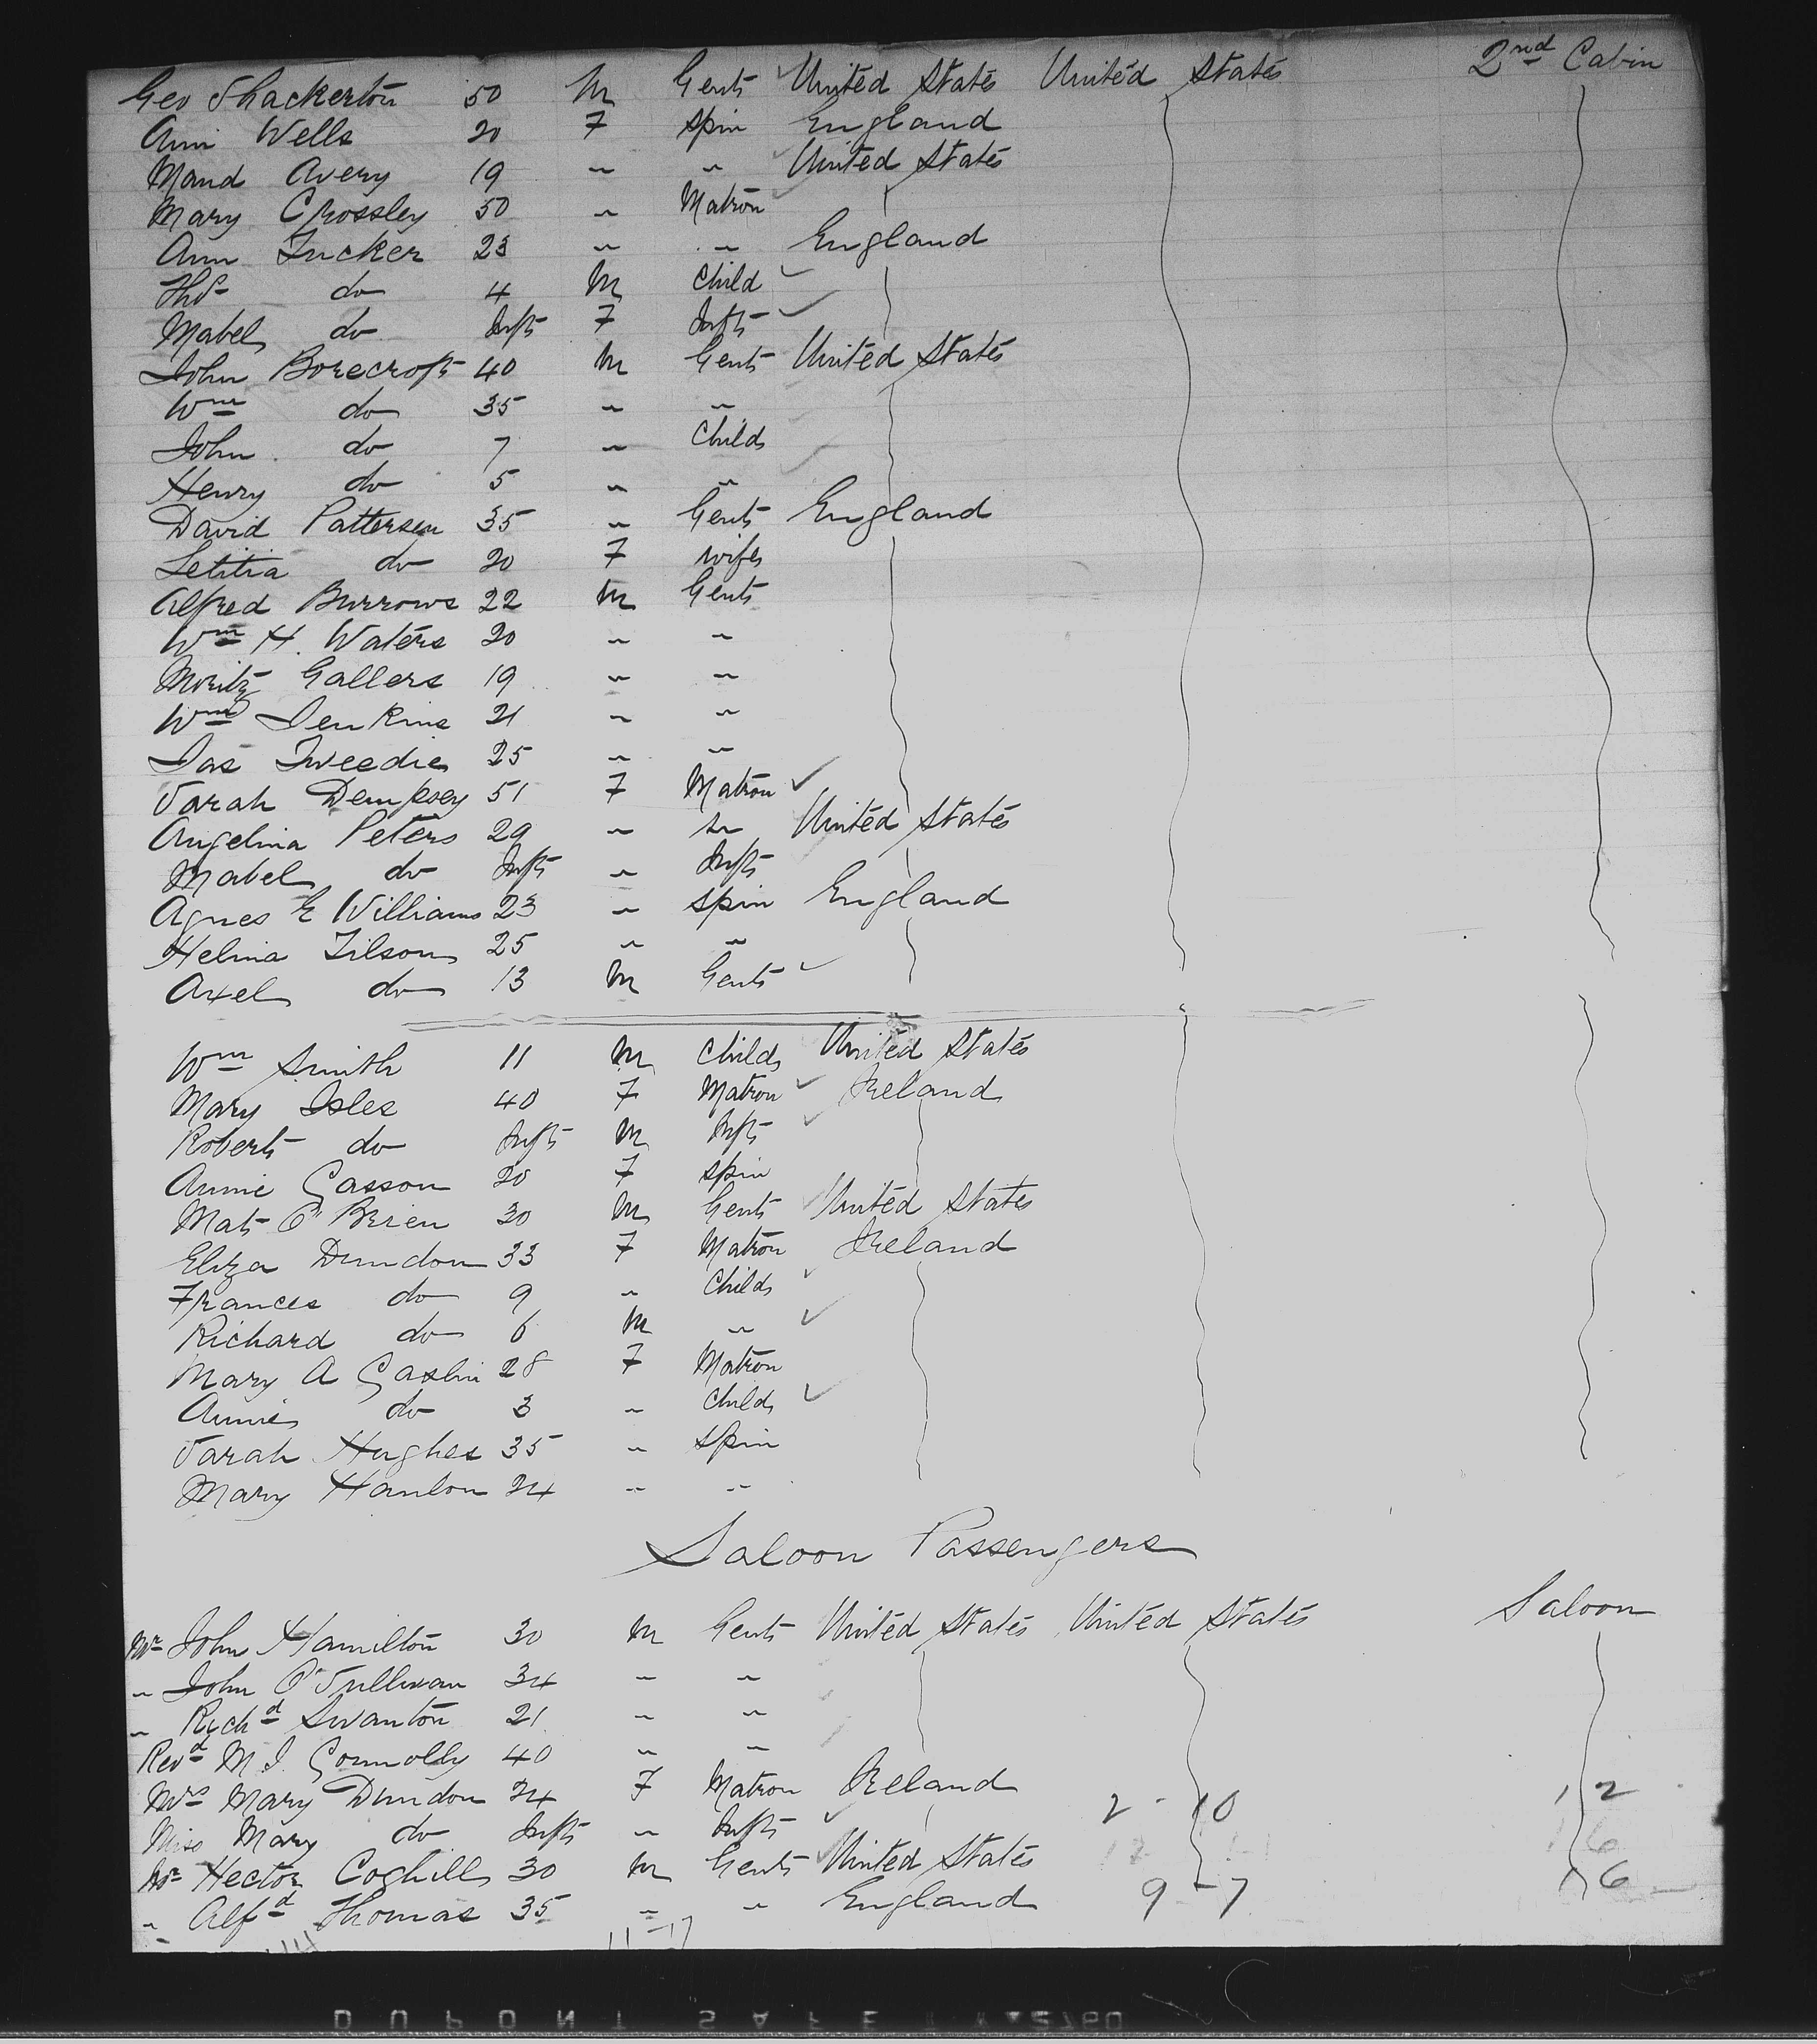 Geo Shackerton 50 M Gent United States United States 2nd Cabin
Ann Wells 20 F Spin England
Maud Avery 19 " " United States
Mary Crossley 50 " Matron
Ann Tucker 23 " " England
Thos do 4 M Child
Mabel do Inft F Inft
John Borecroft 40 M Gent United States
Wm do 35 " "
John do 7 " Child
Henry do 5 " "
David Patterson 35 " Gent England
Letitia do 20 F wife
Alfred Burrows 22 M Gent
Wm H. Waters 20 " "
Moritz Gallers 19 " "
Wm Jenkins 21 " "
Jas Tweedie 25 " "
Sarah Dempsey 51 F Matron
Angelina Peters 29 " " United States
Mabel do Inft " Inft
Agnes E Williams 23 " Spin England
Helina Tilson 25 " "
Axel do 13 M Gent
Wm Smith 11 M Child United States
Mary Isles 40 F Matron Ireland
Robert do Inft M Inft
Annie Gasson 20 F Spin
Mat O'Brien 30 M Gent United States
Eliza Dundon 33 F Matron Ireland
Frances do 9 " Child
Richard do 6 M "
Mary A Gaslin 28 F Matron
Annie do 3 " Child
Sarah Hughes 35 " Spin
Mary Hanlon 24 " "
Saloon Passengers
Mr John Hamilton 30 M Gent United States United States Saloon
" John O'Sullivan 34 " "
" Rychd Swanton 21 " "
Revd M J. Connolly 40 " "
Mrs Mary Dundon 24 F Matron Ireland 2 - 10 1 2
Miss Mary do Inft " Inft
Mr Hector Coghill 30 M Gent United States
" Alfd Thomas 35 " " England 9 - 7 6
11-17
DUPONT SAFETY